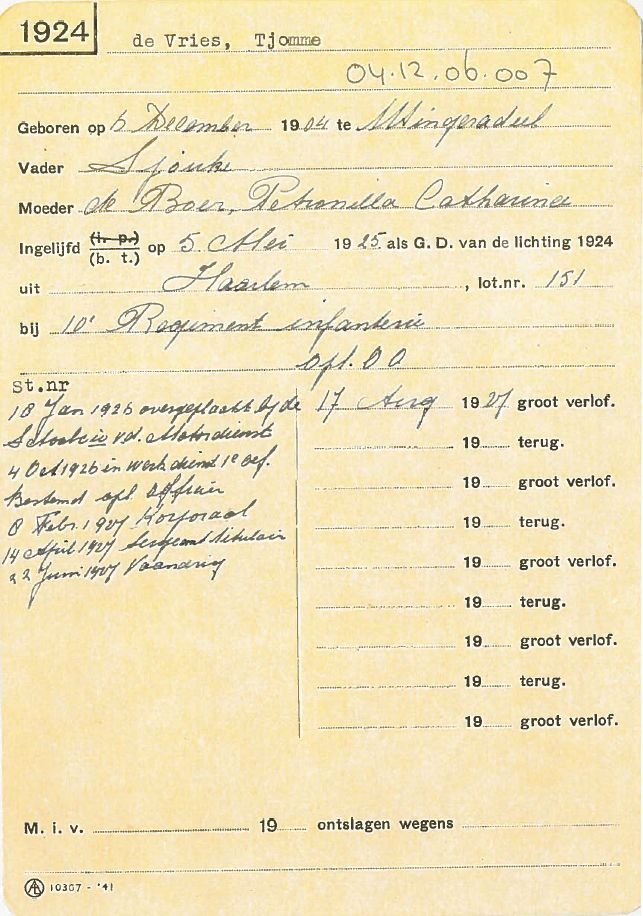 1924
de Vries, Tjomme
04.12.06.007
Geboren op 6 December 1904 te Utingeradeel
Vader Sjouke
Moeder de Boer, Petronilla Catharina
Ingelijfd (l. p.) (b. t.) op 5 Mei 1925 als G. D. van de lichting 1924
uit Haarlem, lot.nr. 151
bij 10e Regiment infanterie
opl. O O
St.nr
18 Jan 1926 overgeplaatst bij de
Schoolcie v.d. Motordienst
4 Oct 1926 in werk. dienst 1e oef.
Bestemd opl Officier
8 Febr. 1927 Korporaal
14 April 1927 Sergeant titulair
22 Juni 1927 Vaandrig
17 Aug 1927 groot verlof.
19 terug.
19 groot verlof.
19 terug.
19 groot verlof.
19 terug.
19 groot verlof.
19 terug.
19 groot verlof.
M. i. v. 19 ontslagen wegens
10367 - '41